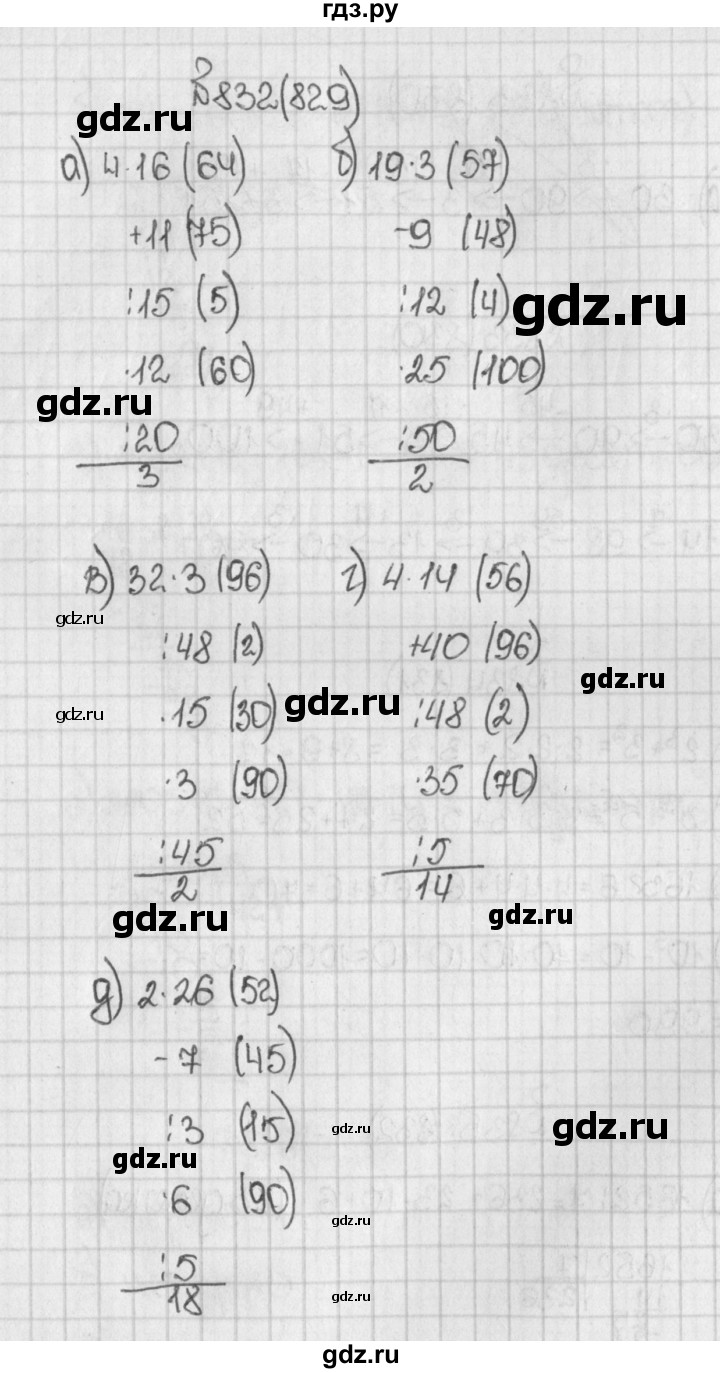 гдз.ру
№832(829)
gdz.ru
а) 4·16 (64) б) 19·3 (57)
+11 (75) -9 (48)
:15 (5) :12 (4)
gdz.ru
·12 (60) ·25 (100)
gdz.ru
:20 :50
3 2
в) 32·3 (96) г) 4·14 (56)
gdz.ru
:48 (2) +40 (96)
gdz.ru
·15 (30) :48 (2)
gdz.ru gdz.ru
·3 (90) ·35 (70)
:45 :5
2 14
gdz.ru gdz.ru
д) 2·26 (52)
-7 (45)
:3 (15)
gdz.ru gdz.ru
gdz.ru
·6 (90)
gdz.ru
:5
18
gdz.ru
gdz.ru